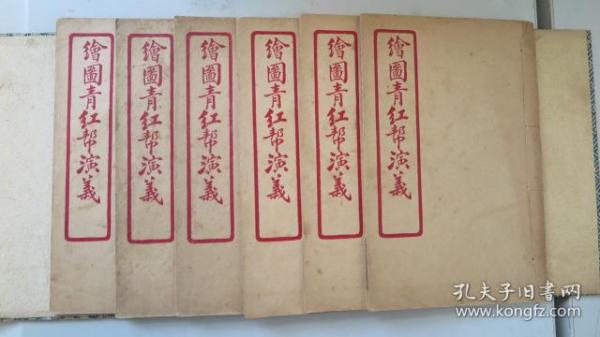 繪圖青红帮演義
繪圖青红帮演義
繪圖青红帮演義
繪圖青红帮演義
繪圖青红帮演義
繪圖青红帮演義
孔夫子旧书网
www.kongfz.com